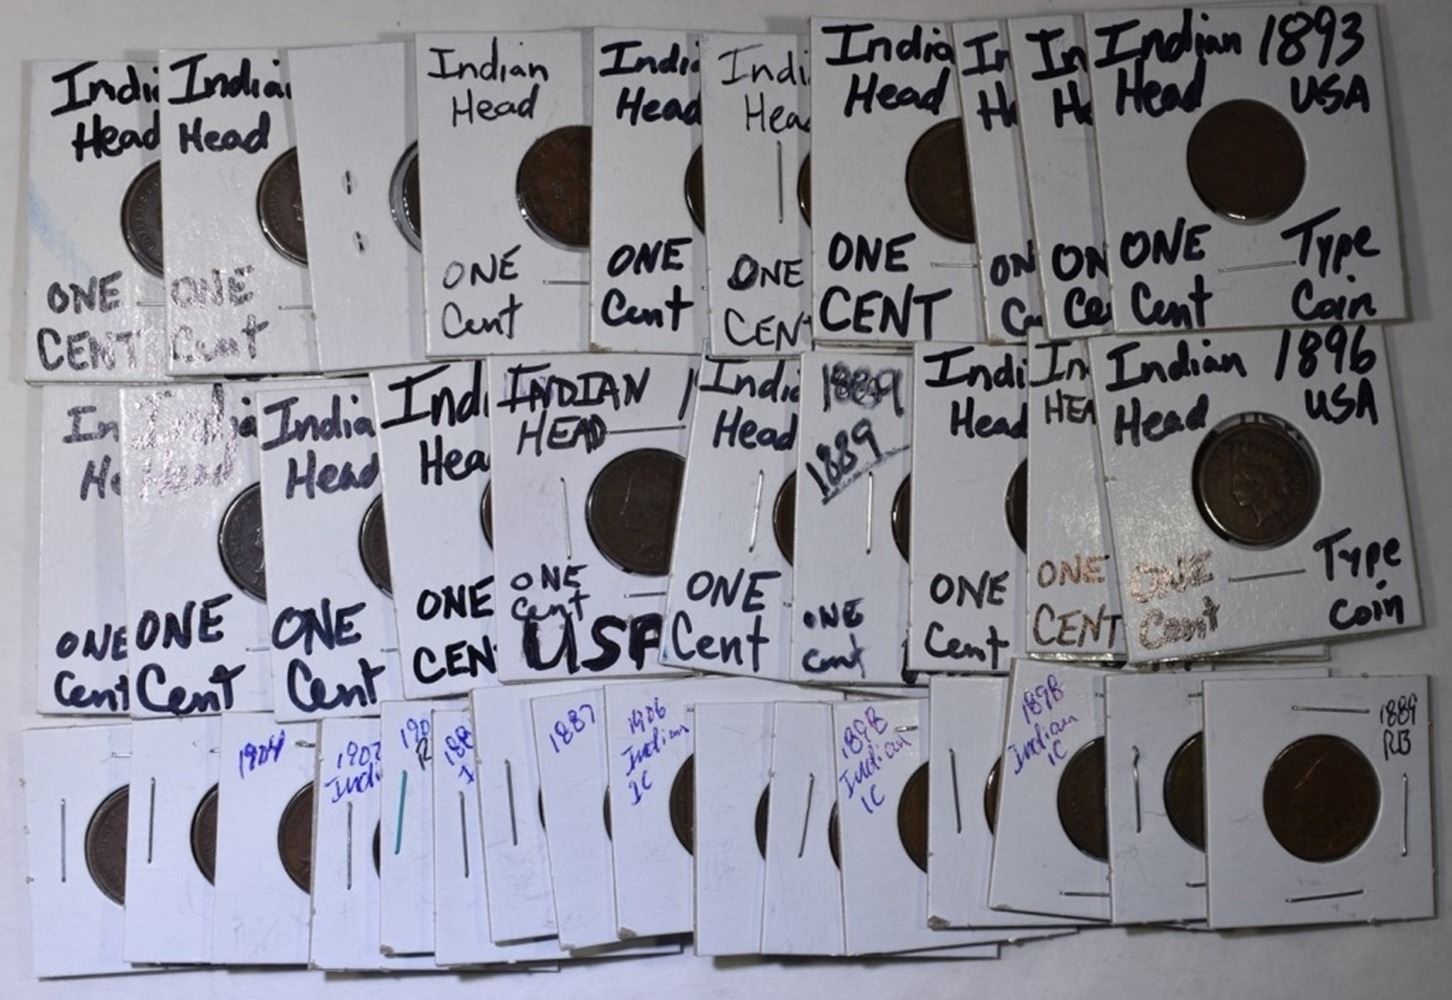 Indi
Head
ONE
CENT
India
Head
ONE
Cent
Indian
Head
ONE
Cent
Indi
Head
ONE
Cent
Indi
Hea
ONE
CENT
India
Head
ONE
CENT
In
H
ON
C
In
He
ON
Ce
Indian 1893
Head USA
ONE Type
Cent Coin
In
He
ONE
Cent
India
Head
ONE
Cent
India
Head
ONE
Cent
Ind
Hea
ONE
CEN
INDIAN 1
HEAD
ONE
Cent
USA
Indi
Head
ONE
Cent
1889
1889
ONE
Cent
Indi
Head
ONE
Cent
In
HEA
ONE
CENT
Indian 1896
Head USA
ONE Type
Cent Coin
1904
1907
Indi
190
R
188
I
1887
1906
Indian
1C
1898
Indian
1C
1898
Indian
1C
1889
RB